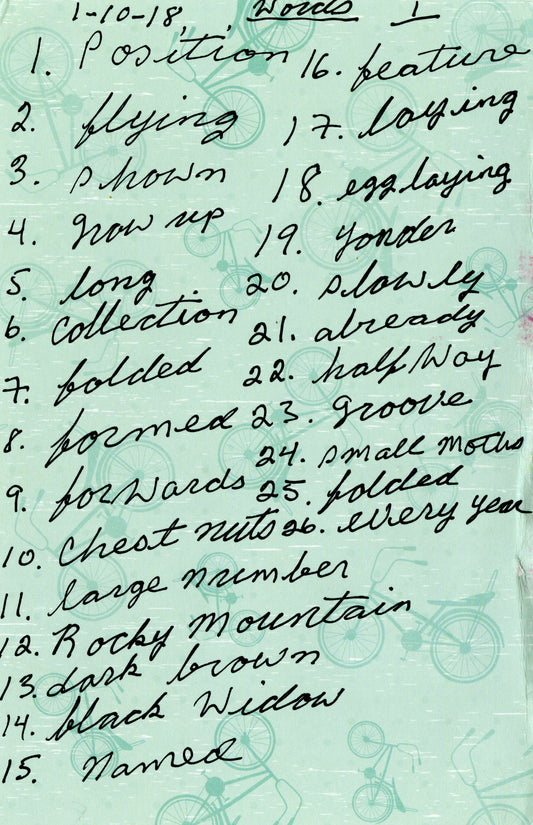 1-10-18, Words 1
1. Position
2. flying
3. shown
4. grow up
5. long
6. Collection
7. folded
8. formed
9. forwards
10. Chest nuts
11. large number
12. Rocky Mountain
13. dark brown
14. black Widow
15. Named
16. feature
17. laying
18. egg laying
19. yonder
20. slowly
21. already
22. half Way
23. groove
24. small moths
25. folded
26. every year